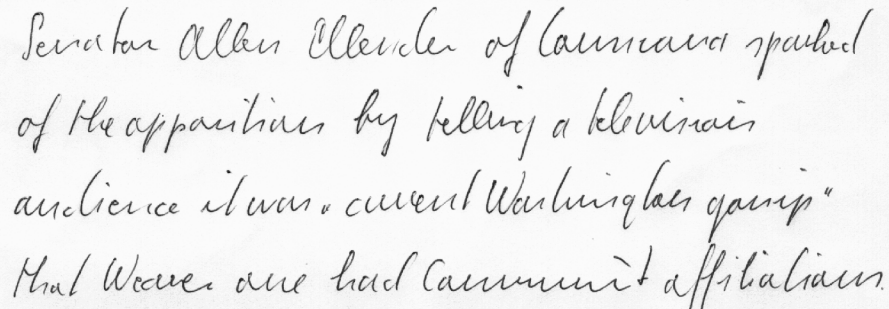 Senator Allen Ellender of Louisiana sparked
of the oppositions by telling a television
audience it was "current Washington gossip"
that Weaver one had Communist affiliations.